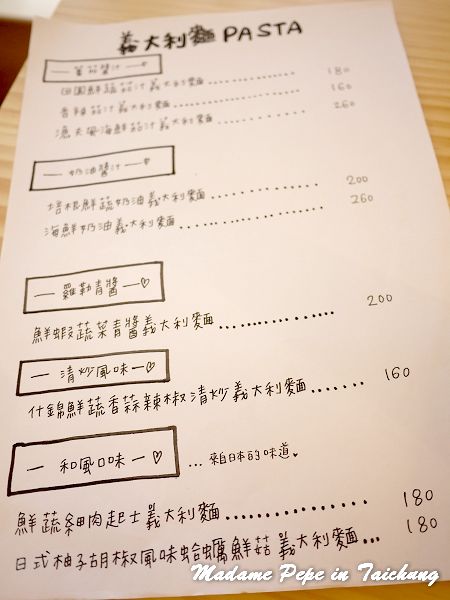 義大利麵 PASTA
蕃茄醬汁
田園鮮蔬茄汁義大利麵 180
香辣茄汁義大利麵 160
漁夫風海鮮茄汁義大利麵 260
奶油醬汁
培根鮮蔬奶油義大利麵 200
海鮮奶油義大利麵 260
羅勒青醬
鮮蝦蔬菜青醬義大利麵 200
清炒風味
什錦鮮蔬香蒜辣椒清炒義大利麵 160
和風口味 ...來自日本的味道
鮮蔬細肉起士義大利麵 180
日式柚子胡椒風味蛤蠣鮮菇義大利麵 180
Madame Pepe in Taichung